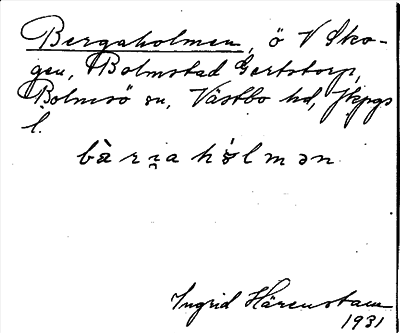 Bergaholmen, ö V Sko-
gen, Bolmstad Gertstorp,
Bolmsö sn, Västbo hd, Jkpgs
l.
bàri̯ahòlmən
Ingrid Härenstam
1931